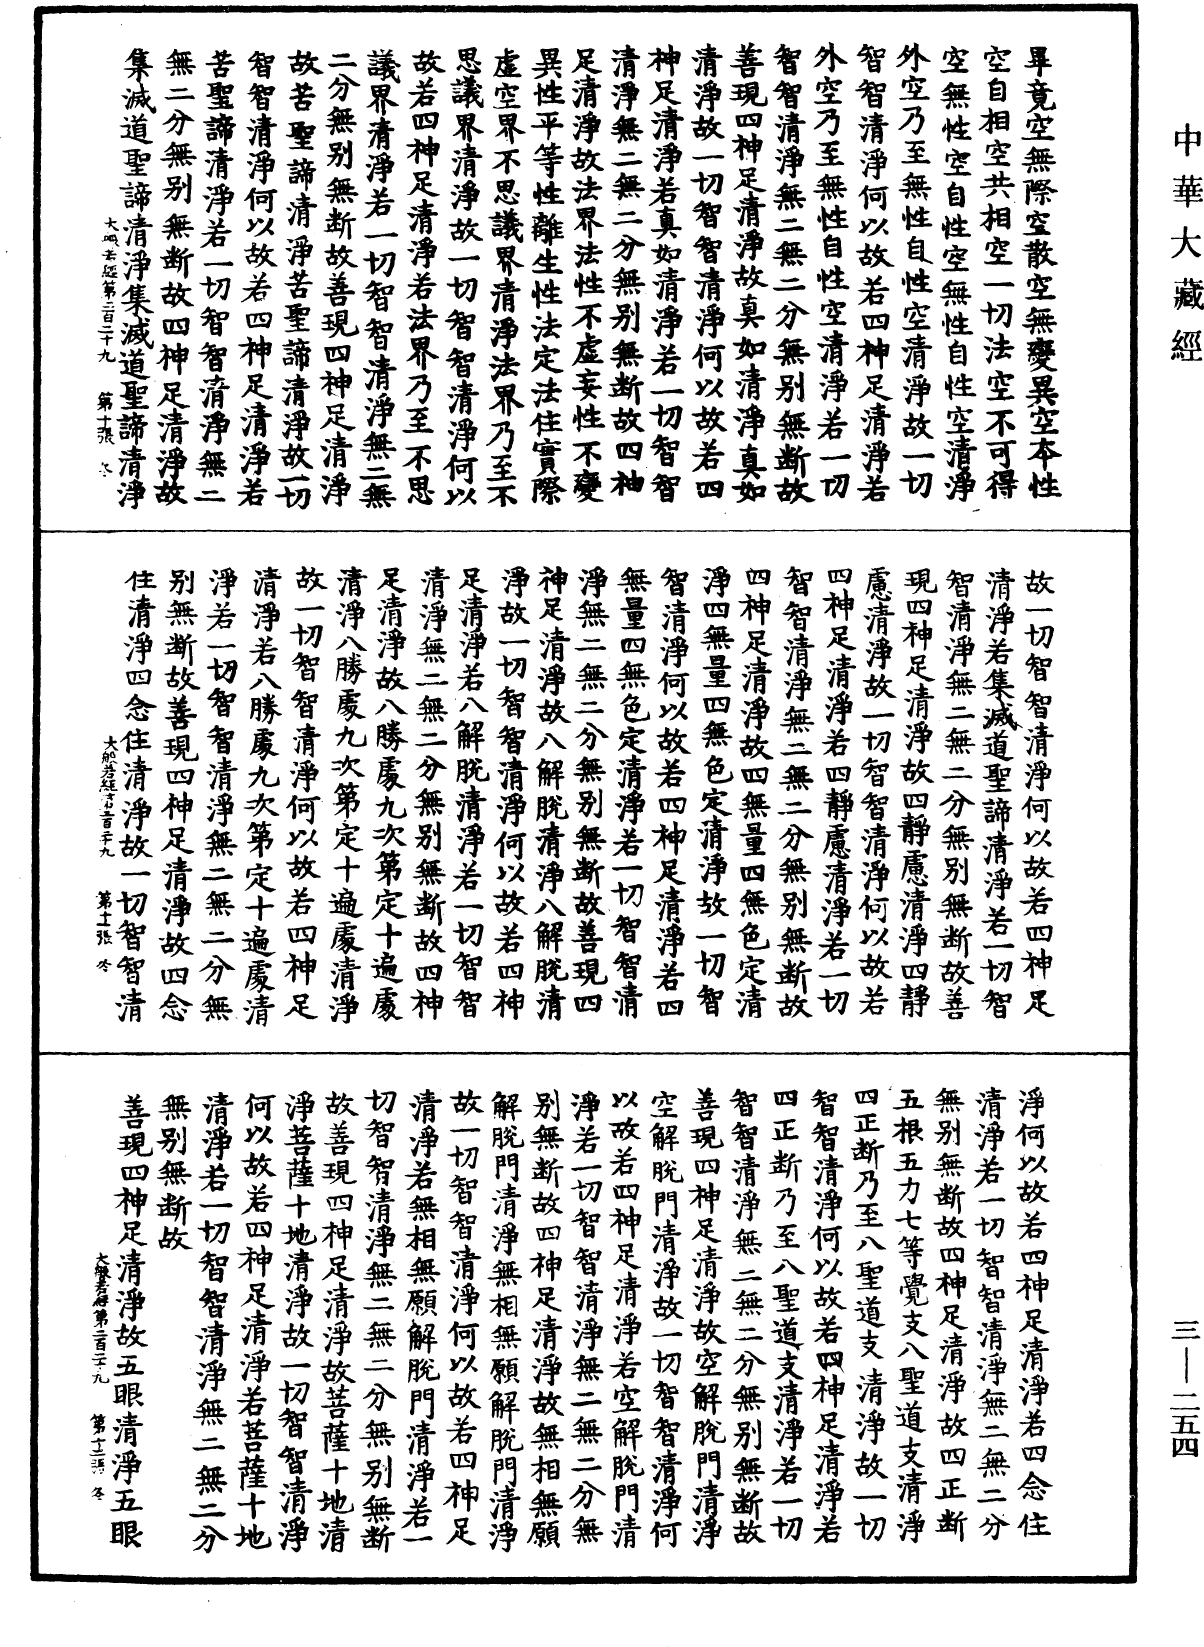 中華大藏經
畢竟空無際空散空無變異空本性
空自相空共相空一切法空不可得
空無性空自性空無性自性空清淨
外空乃至無性自性空清淨故一切
智智清淨何以故若四神足清淨若
外空乃至無性自性空清淨若一切
智智清淨無二無二分無別無斷故
善現四神足清淨故真如清淨真如
清淨故一切智智清淨何以故若四
神足清淨若真如清淨若一切智智
清淨無二無二分無別無斷故四神
足清淨故法界法性不虛妄性不變
異性平等性離生性法定法住實際
虛空界不思議界清淨法界乃至不
思議界清淨故一切智智清淨何以
故若四神足清淨若法界乃至不思
議界清淨若一切智智清淨無二無
二分無別無斷故善現四神足清淨
故苦聖諦清淨苦聖諦清淨故一切
智智清淨何以故若四神足清淨若
苦聖諦清淨若一切智智清淨無二
無二分無別無斷故四神足清淨故
集滅道聖諦清淨集滅道聖諦清淨
大般若經第二百二十九 第十張 冬
故一切智智清淨何以故若四神足
清淨若集滅道聖諦清淨若一切智
智清淨無二無二分無別無斷故善
現四神足清淨故四靜慮清淨四靜
慮清淨故一切智智清淨何以故若
四神足清淨若四靜慮清淨若一切
智智清淨無二無二分無別無斷故
四神足清淨故四無量四無色定清
淨四無量四無色定清淨故一切智
智清淨何以故若四神足清淨若四
無量四無色定清淨若一切智智清
淨無二無二分無別無斷故善現四
神足清淨故八解脫清淨八解脫清
淨故一切智智清淨何以故若四神
足清淨若八解脫清淨若一切智智
清淨無二無二分無別無斷故四神
足清淨故八勝處九次第定十遍處
清淨八勝處九次第定十遍處清淨
故一切智智清淨何以故若四神足
清淨若八勝處九次第定十遍處清
淨若一切智智清淨無二無二分無
別無斷故善現四神足清淨故四念
住清淨四念住清淨故一切智智清
大般若經第二百二十九 第十一張 冬
淨何以故若四神足清淨若四念住
清淨若一切智智清淨無二無二分
無別無斷故四神足清淨故四正斷
五根五力七等覺支八聖道支清淨
四正斷乃至八聖道支清淨故一切
智智清淨何以故若四神足清淨若
四正斷乃至八聖道支清淨若一切
智智清淨無二無二分無別無斷故
善現四神足清淨故空解脫門清淨
空解脫門清淨故一切智智清淨何
以故若四神足清淨若空解脫門清
淨若一切智智清淨無二無二分無
別無斷故四神足清淨故無相無願
解脫門清淨無相無願解脫門清淨
故一切智智清淨何以故若四神足
清淨若無相無願解脫門清淨若一
切智智清淨無二無二分無別無斷
故善現四神足清淨故菩薩十地清
淨菩薩十地清淨故一切智智清淨
何以故若四神足清淨若菩薩十地
清淨若一切智智清淨無二無二分
無別無斷故
善現四神足清淨故五眼清淨五眼
大般若經第二百二十九 第十二張 冬
三—二五四